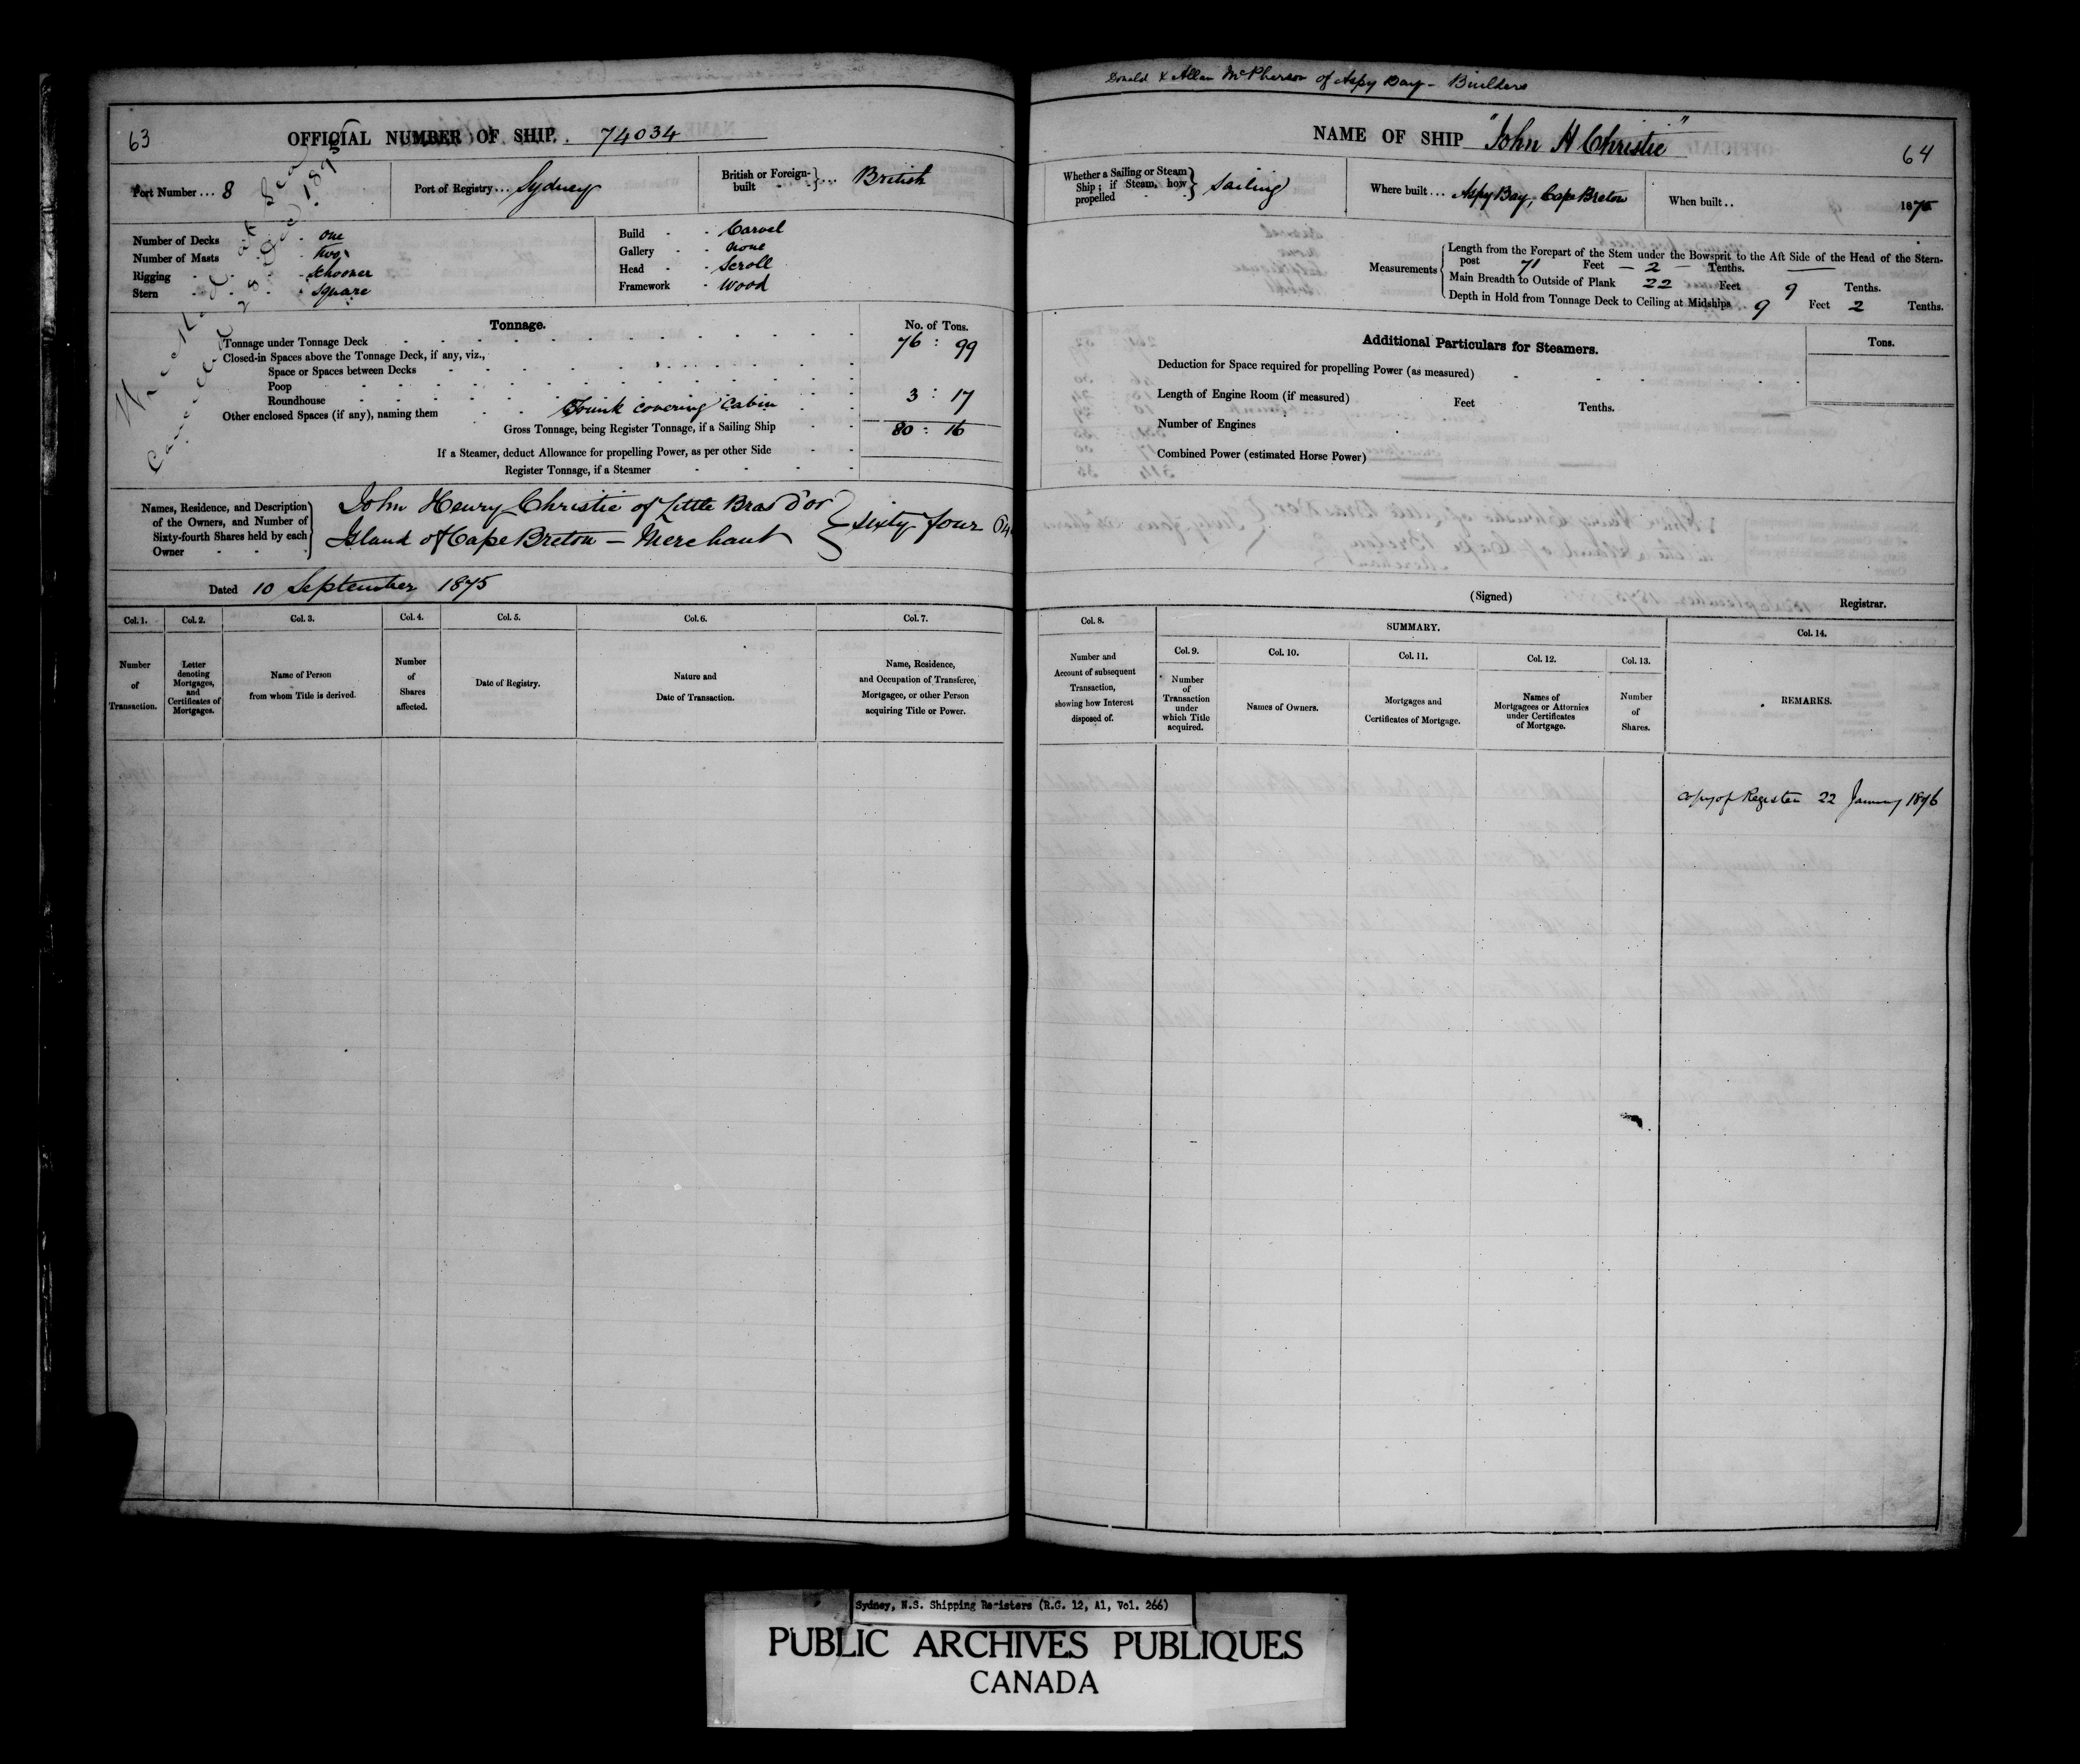 63
OFFICIAL NUMBER OF SHIP. 74034
Port Number ... 8
Port of Registry ... Sydney
British or Foreign-built } ... British
Number of Decks - one
Number of Masts - two
Rigging - Schooner
Stern - Square
Build - Carvel
Gallery - none
Head - Scroll
Framework - Wood
Wrecked at Sea
Cancelled 28 1895
Tonnage.
No. of Tons.
Tonnage under Tonnage Deck 76 : 99
Closed-in Spaces above the Tonnage Deck, if any, viz.,
Space or Spaces between Decks
Poop
Roundhouse
Other enclosed Spaces (if any), naming them Trunk covering Cabin 3 : 17
Gross Tonnage, being Register Tonnage, if a Sailing Ship 80 : 16
If a Steamer, deduct Allowance for propelling Power, as per other Side
Register Tonnage, if a Steamer
Names, Residence, and Description of the Owners, and Number of Sixty-fourth Shares held by each Owner
John Henry Christie of Little Bras d'or
Island of Cape Breton — Merchant } Sixty four 64
Dated 10 September 1875
Col. 1. Col. 2. Col. 3. Col. 4. Col. 5. Col. 6. Col. 7.
Number of Transaction.
Letter denoting Mortgages, and Certificates of Mortgages.
Name of Person from whom Title is derived.
Number of Shares affected.
Date of Registry.
Nature and Date of Transaction.
Name, Residence, and Occupation of Transferee, Mortgagee, or other Person acquiring Title or Power.
Donald & Allan McPherson of Aspy Bay - Builders
NAME OF SHIP "John H Christie"
64
Whether a Sailing or Steam Ship; if Steam, how propelled } Sailing
Where built ... Aspy Bay, Cape Breton
When built .. 1875
Measurements
Length from the Forepart of the Stem under the Bowsprit to the Aft Side of the Head of the Stern-
post 71 Feet — 2 — Tenths.
Main Breadth to Outside of Plank 22 Feet 9 Tenths.
Depth in Hold from Tonnage Deck to Ceiling at Midships 9 Feet 2 Tenths.
Additional Particulars for Steamers.
Tons.
Deduction for Space required for propelling Power (as measured)
Length of Engine Room (if measured) Feet Tenths.
Number of Engines
Combined Power (estimated Horse Power)
(Signed) Registrar.
Col. 8. SUMMARY. Col. 14.
Col. 9. Col. 10. Col. 11. Col. 12. Col. 13.
Number and Account of subsequent Transaction, showing how Interest disposed of.
Number of Transaction under which Title acquired.
Names of Owners.
Mortgages and Certificates of Mortgage.
Names of Mortgagees or Attornies under Certificates of Mortgage.
Number of Shares.
REMARKS.
Copy of Register 22 January 1876
Sydney, N.S. Shipping Registers (R.G. 12, A1, Vol. 266)
PUBLIC ARCHIVES PUBLIQUES
CANADA